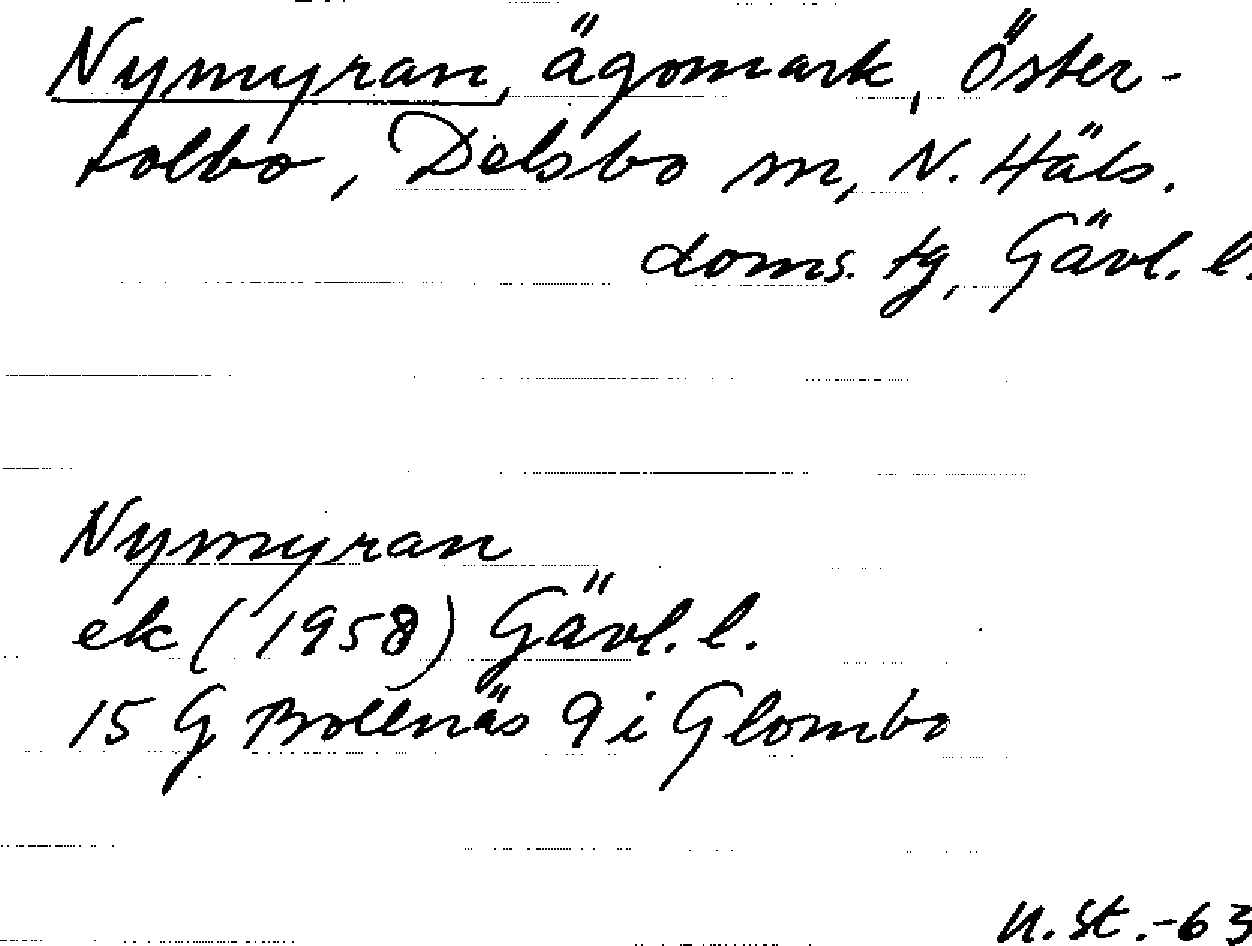 Nymyran, ägomark, Öster-
tolbo, Delsbo sn, N. Häls.
doms. tg, Gävl. l.
Nymyran
ek (1958) Gävl. l.
15 G Bollnäs 9 i Glombo
U. St. -63